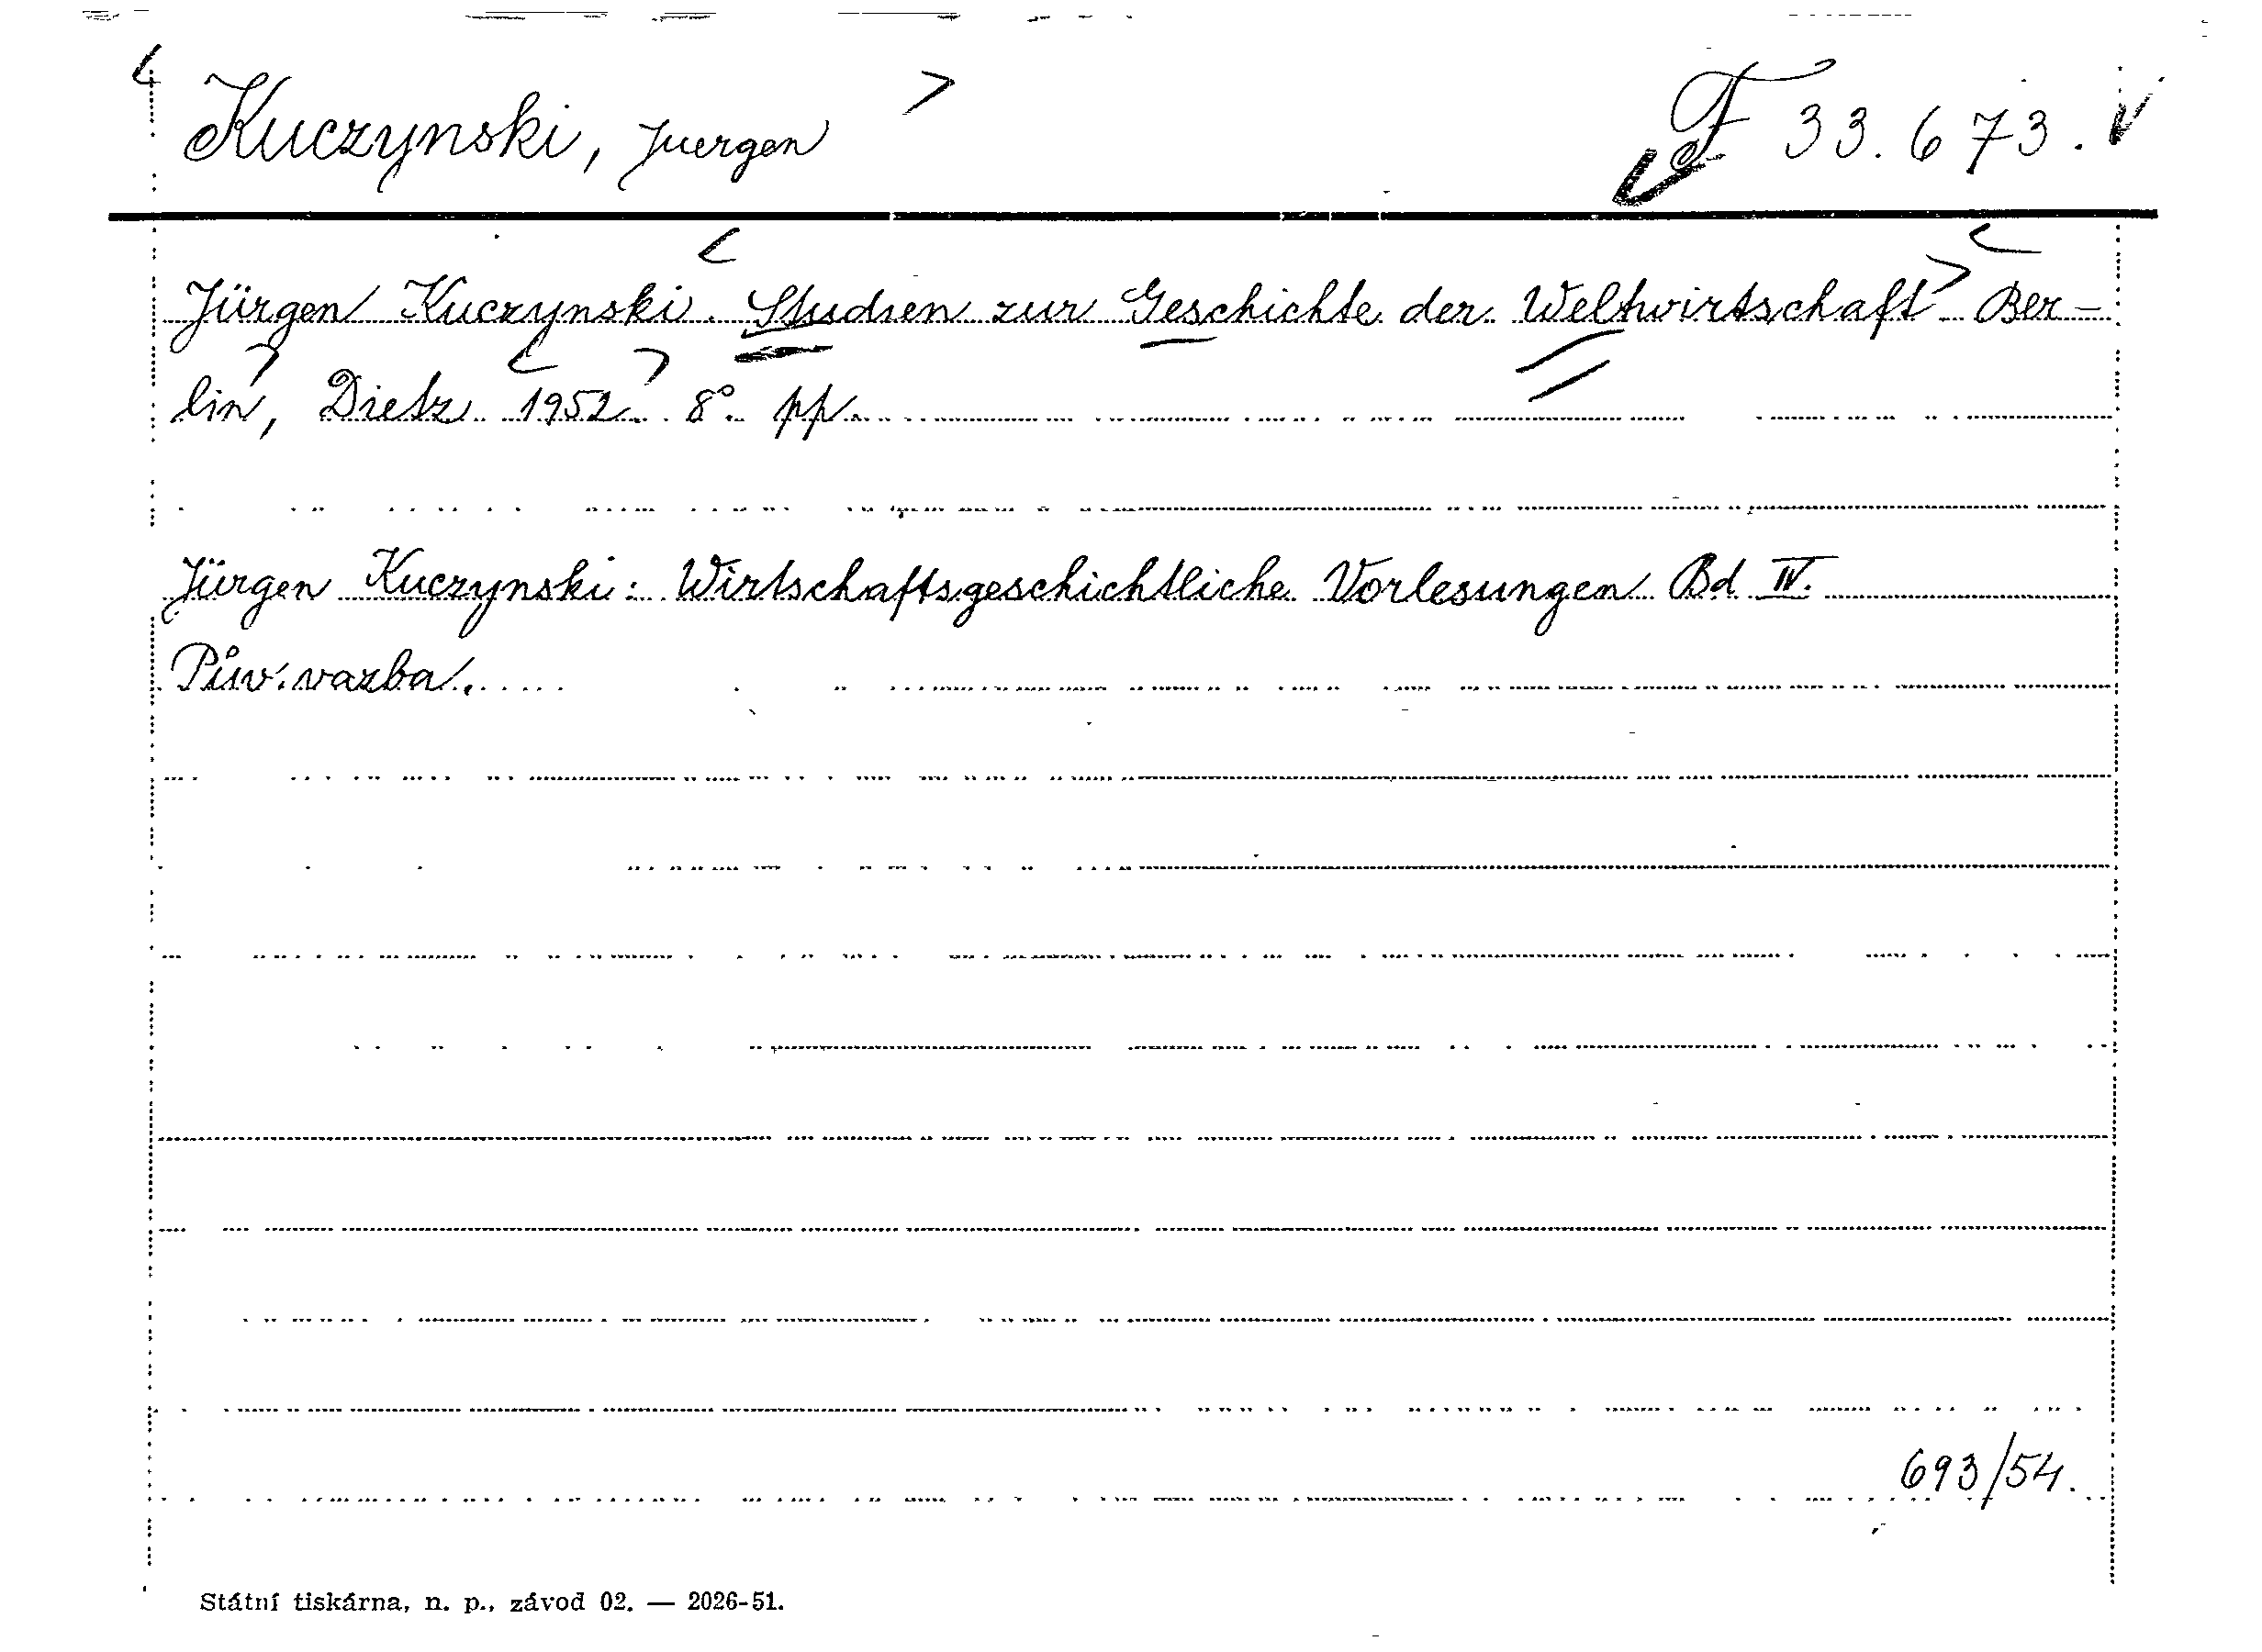 Kuczynski, Juergen F 33.673.
Jürgen Kuczynski. Studien zur Geschichte der Weltwirtschaft. Ber-
lin, Dietz 1952. 8°. pp.
Jürgen Kuczynski: Wirtschaftsgeschichtliche Vorlesungen Bd IV.
Pův. vazba.
693/54.
Státní tiskárna, n. p., závod 02. — 2026-51.